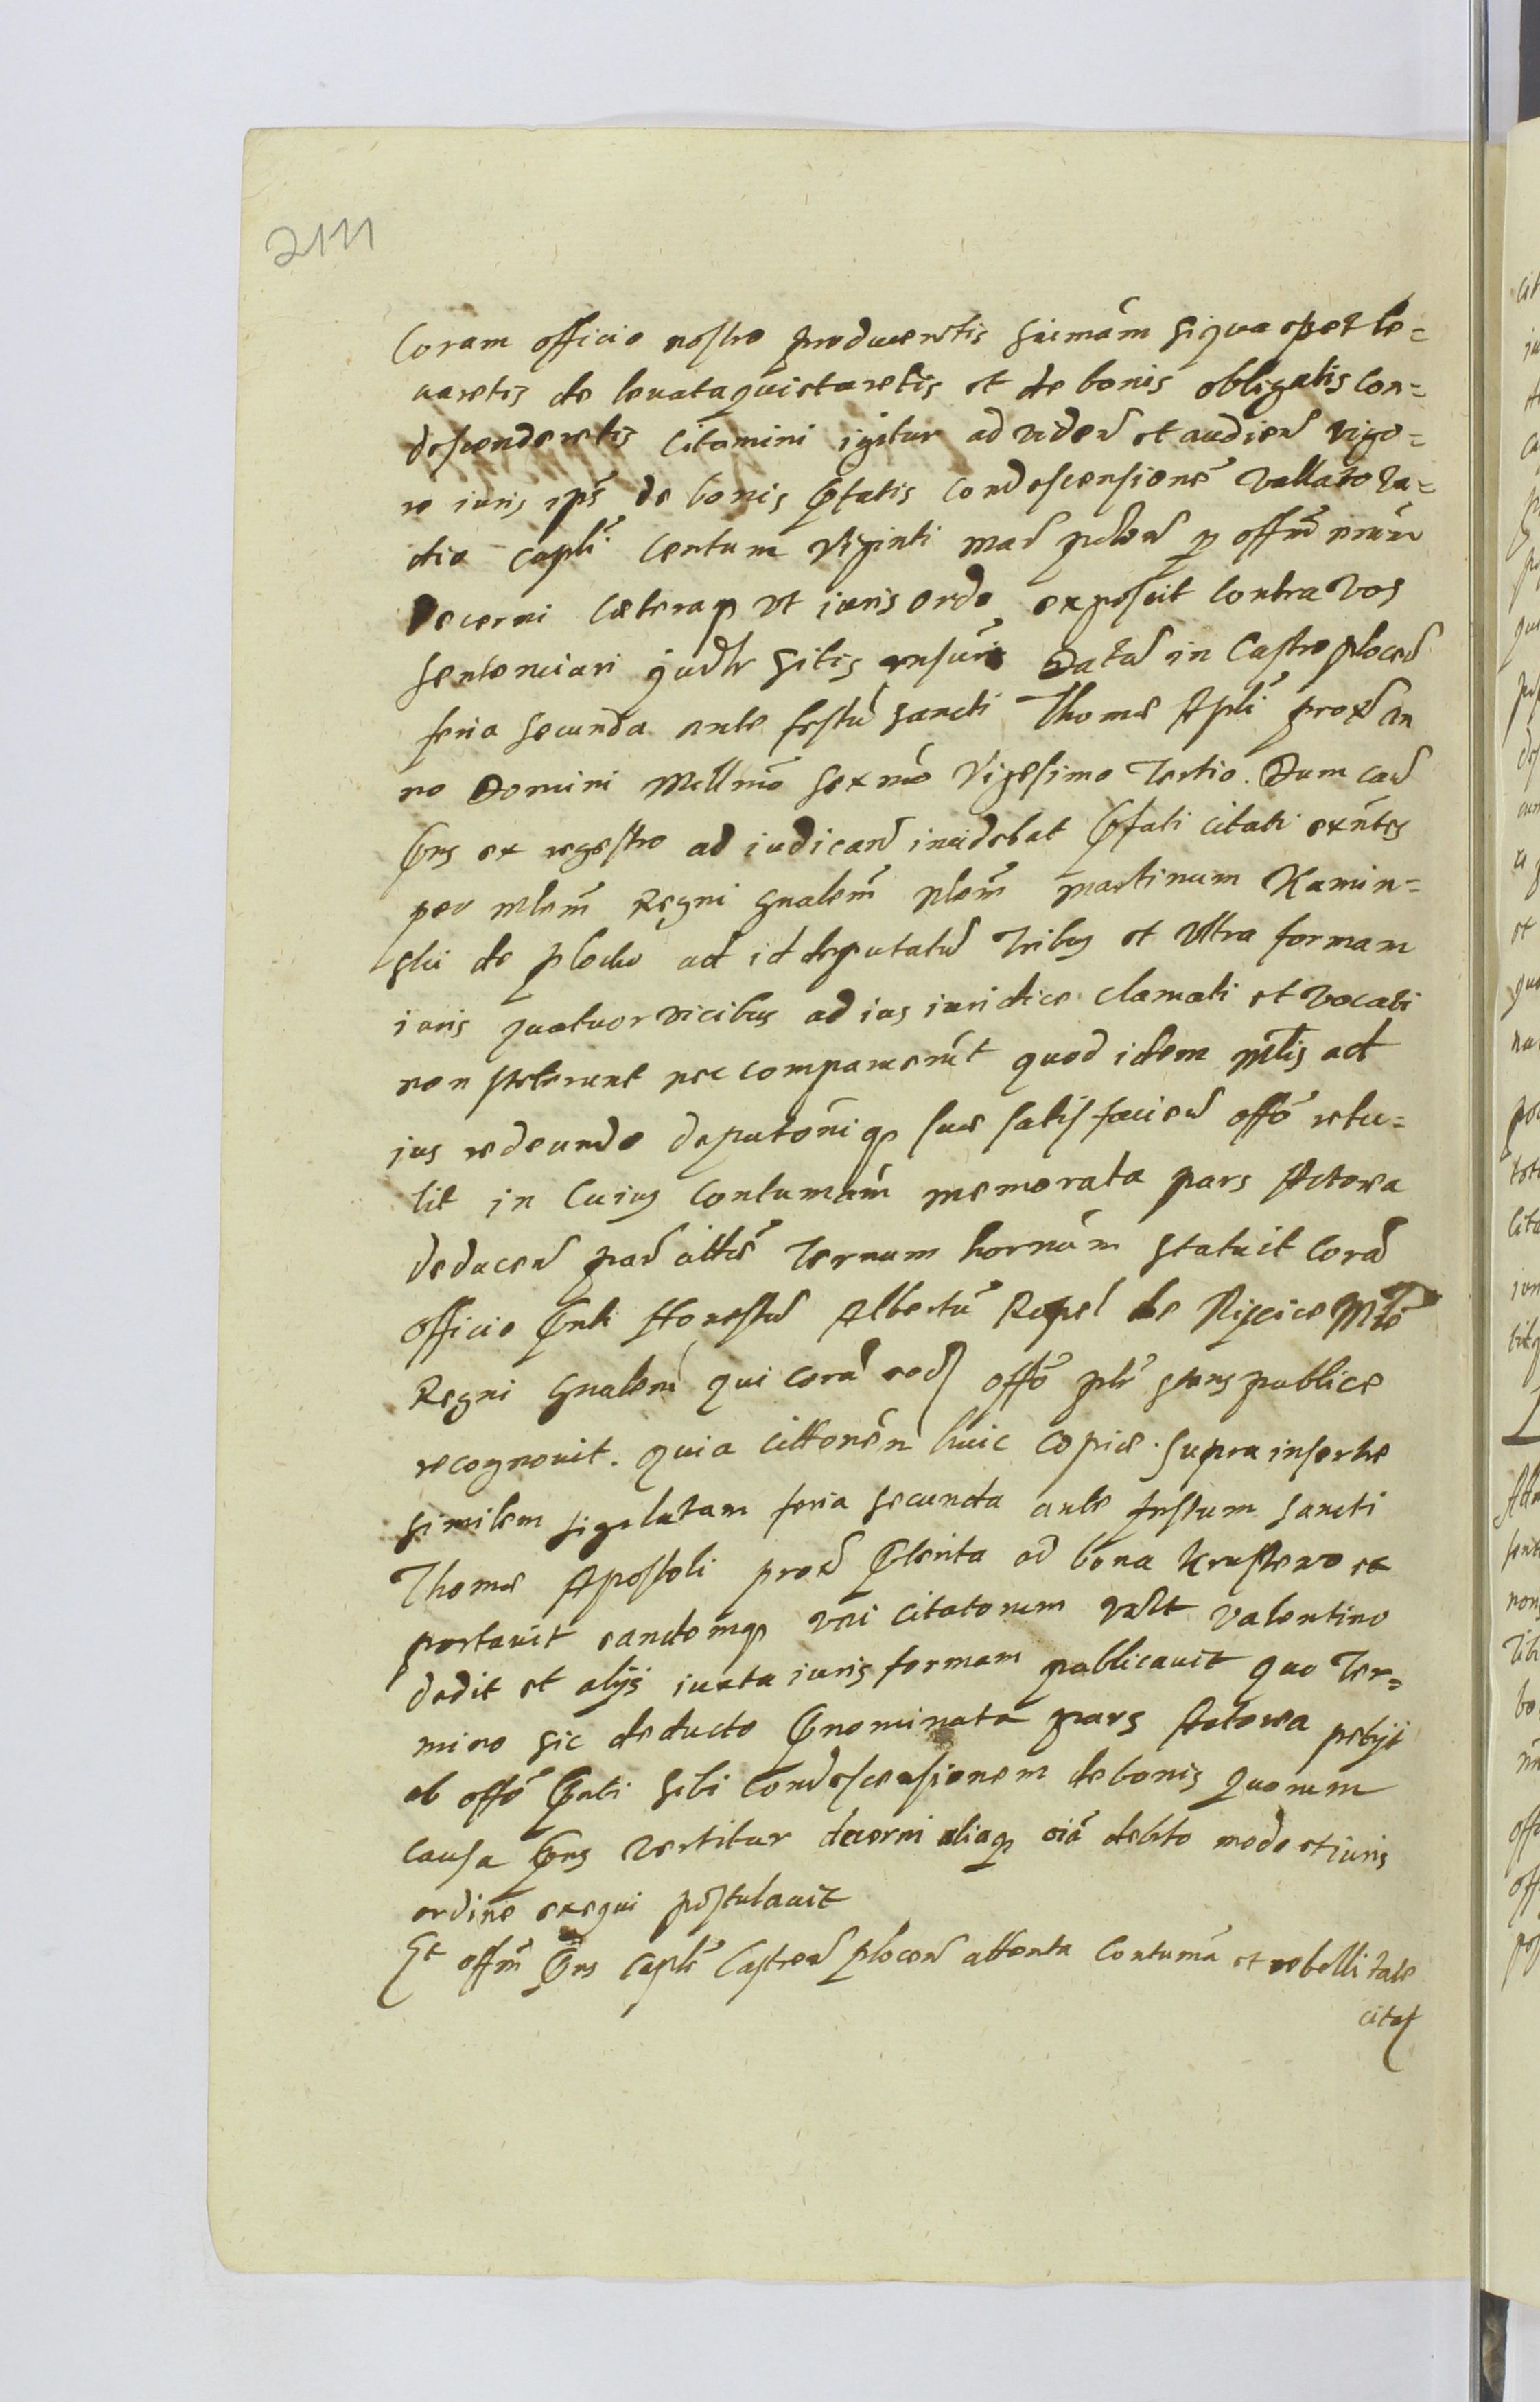 2111
Coram officio nostro produceretis sūmām siqua spet le=
uaretis de leuata quietaretis et de bonis obligatis con=
descenderetis Citamini igitur ad viden et audien vigo=
re iuris ips de bonis Pfatis Condescensionē vallato va=
dio capli Centum Viginti mar polon p offm nrum
Decerni Caeteraq ut iuris ordo exposcit Contra vos
Sentenciari judlr sitis rnsuri Datū in Castro plocen
feria Secunda ante festū Sancti Thomae Apli prox an
no Domini Millmo Sexmo Vigesimo Tertio. Dum cau
Pns ex regestro ad iudicand incidebat Pfati citati exntes
per mlem Regni Gnalem plem Martinum Kamin=
ski de Plocko ad id deputatū Tribus et Ultra formam
iuris quatuor vicibus ad ius iuridice clamati et vocati
non steterunt nec comparuerūt quod idem mlis ad
ius redeundo deputoniq suae satisfaciend offo retu=
lit in Cuius Contumam memorata pars Actorea
deducen par attae Ternum hornum Statuit Corā
officio Pnti Honestū Albertū Repel de Niscice Mle
Regni Gnalem qui corā eod offo plr stans publice
recognouit. quia citlonem huic copiae supra insertae
similem sigillatam feria secunda ante festum Sancti
Thomae Apostoli prox Pterita ad bona Krusxewo ex
portauit eandemq vni citatorum Valentino
dedit et alijs iuxta iuris formam publicauit quo Ter=
mino sic deducto Pnominata pars Actorea petyt
ab offo Pnti sibi Condescensionem de bonis Quorum
causa Pns vertitur decerni aliaq oia debito modo et iuris
ordine exequi postulauit
Et offm Pns Capli Castren plocen attenta Contuma et rebellitate
citat